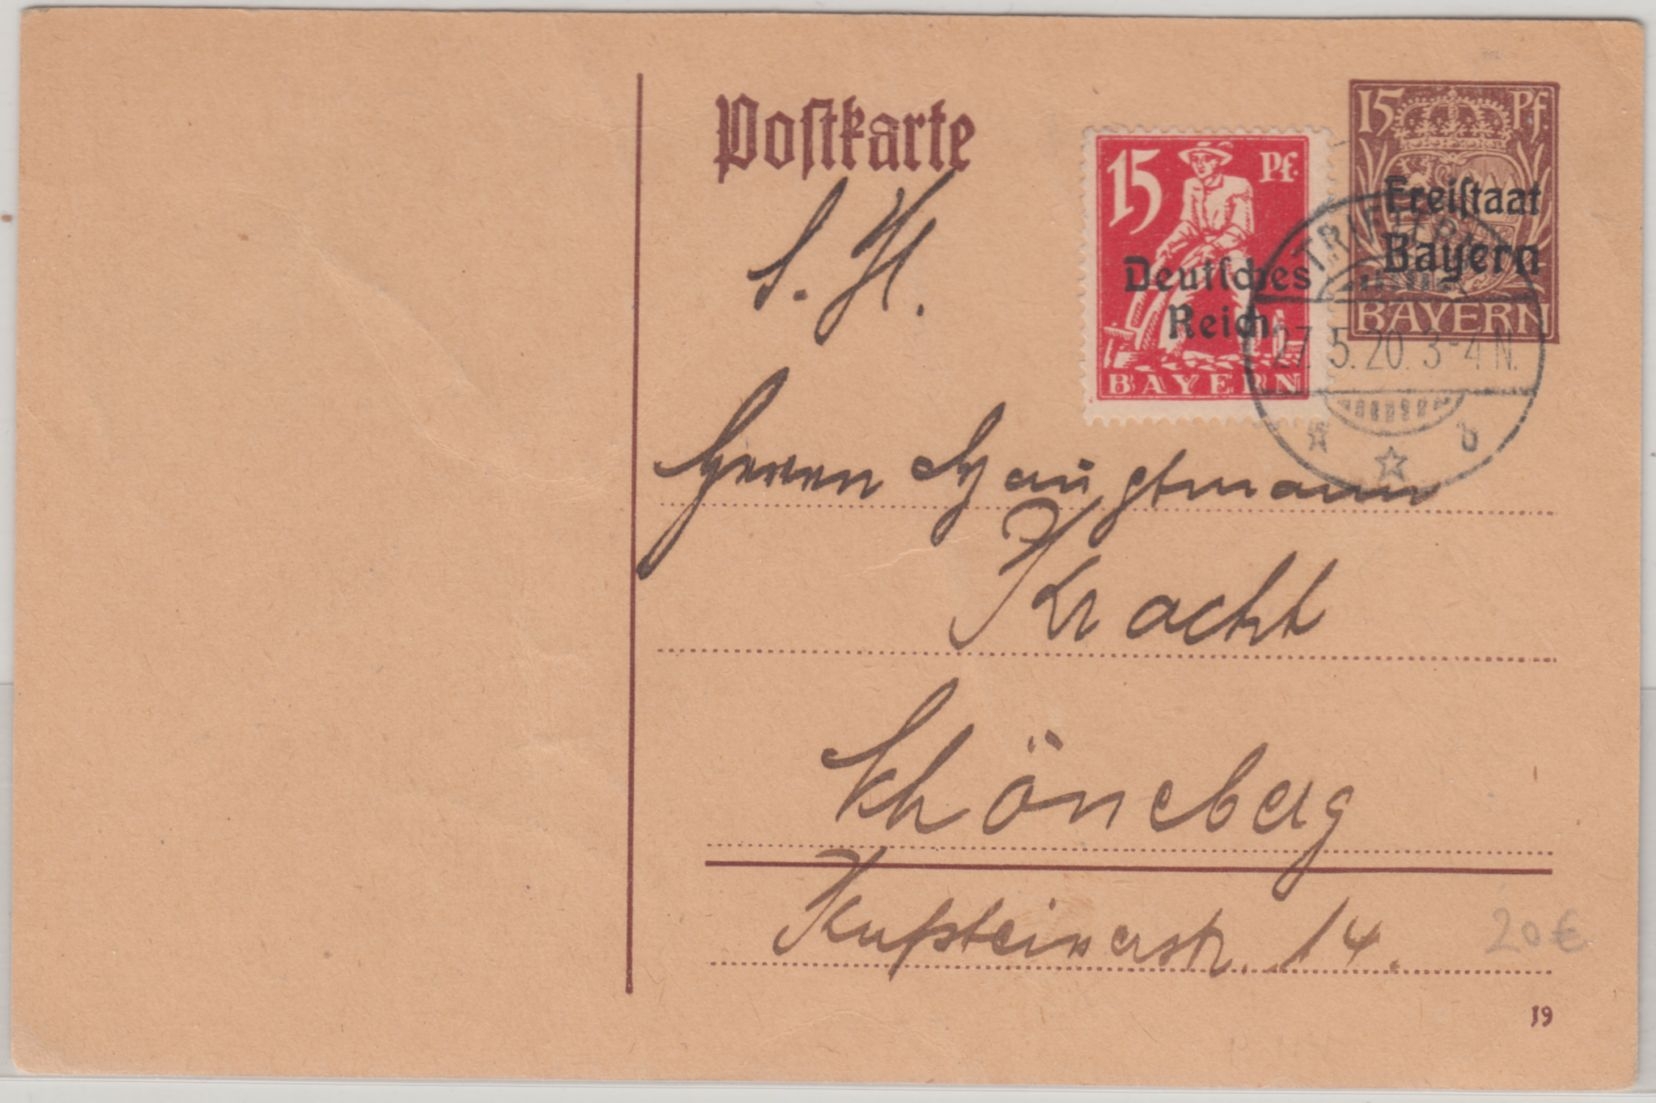 Postkarte
15 Pf.
Deutsches
Reich
BAYERN
15 Pf.
Freistaat
Bayern
BAYERN
27.5.20. 3-4 N.
b
S. H.
Herrn Hauptmann
Kracht
Schöneberg
Kufsteinerstr. 14.
20€
19